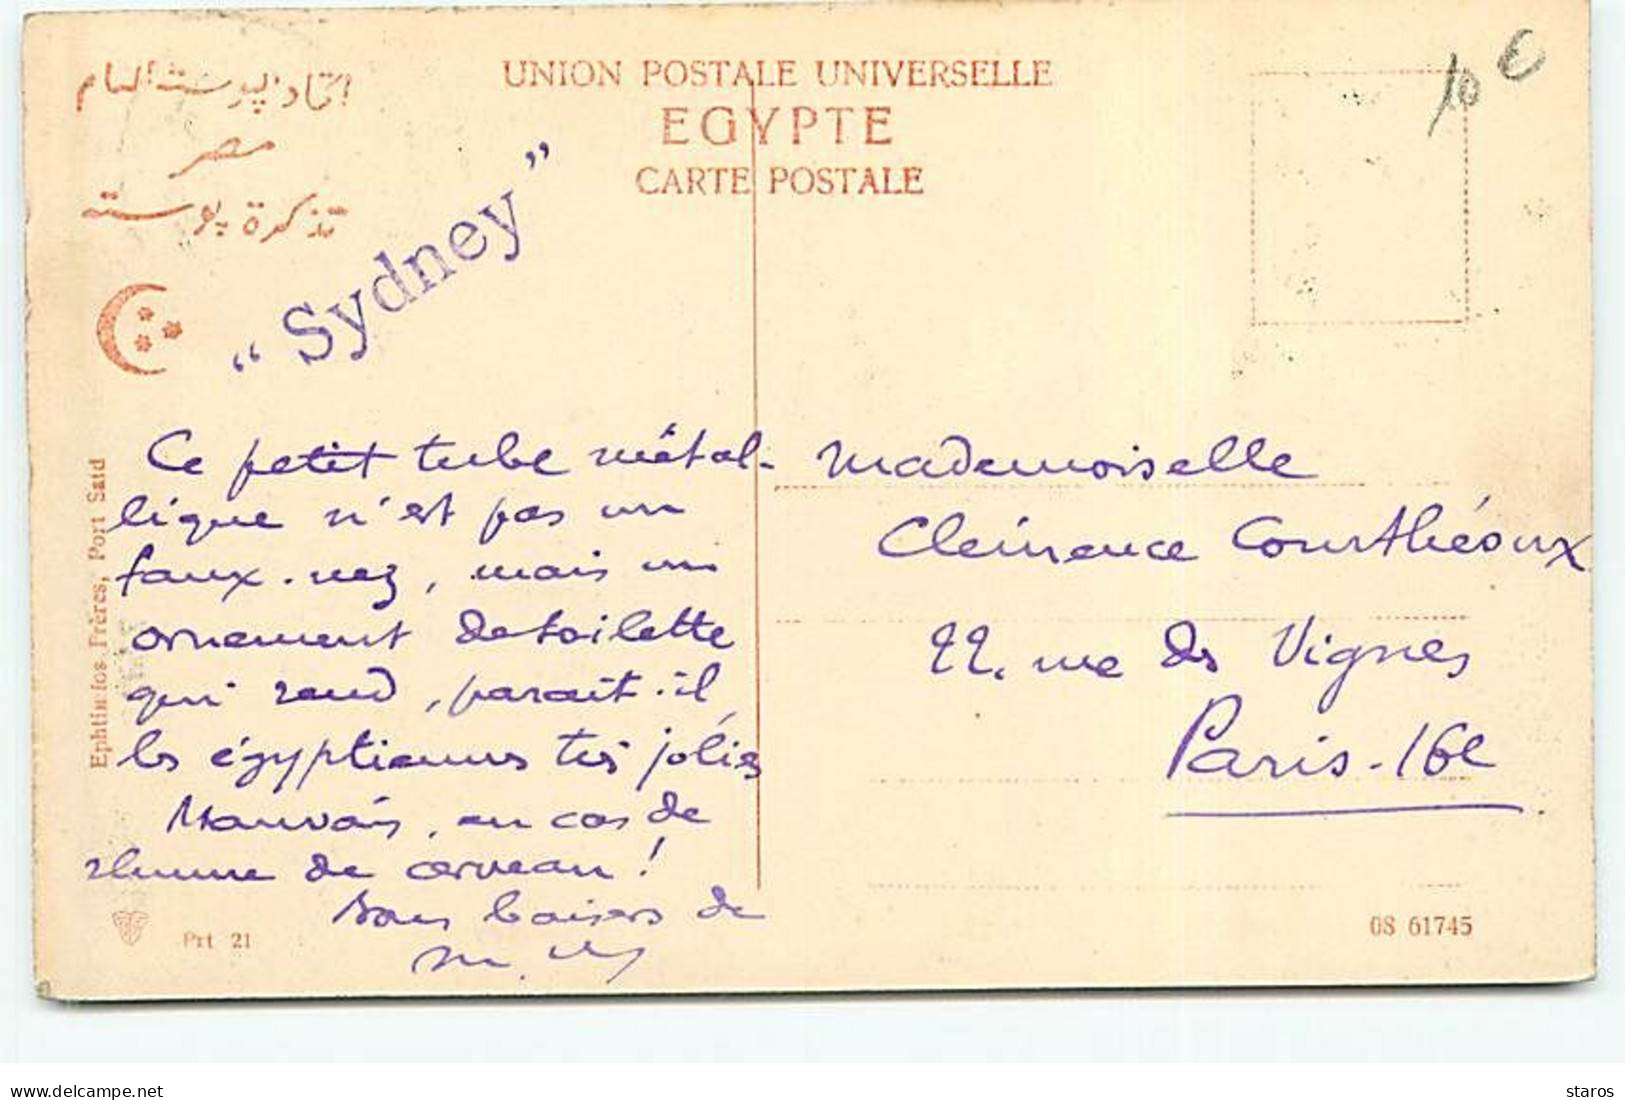 اتحاد البوستة العام
مصر
تذكرة بوسته
UNION POSTALE UNIVERSELLE
EGYPTE
CARTE POSTALE
10 €
"Sydney"
Ce petit tube métal-
lique n'est pas un
faux-nez, mais un
ornement de toilette
qui rend, parait-il
les égyptiennes très jolies
Mauvais, en cas de
rhume de cerveau!
Bons baisers de
Mademoiselle
Clémence Courthéoux
22, rue des Vignes
Paris-16e
Ephtimios Frères, Port Said
Prt 21
08 61745
delcampe.net
staros